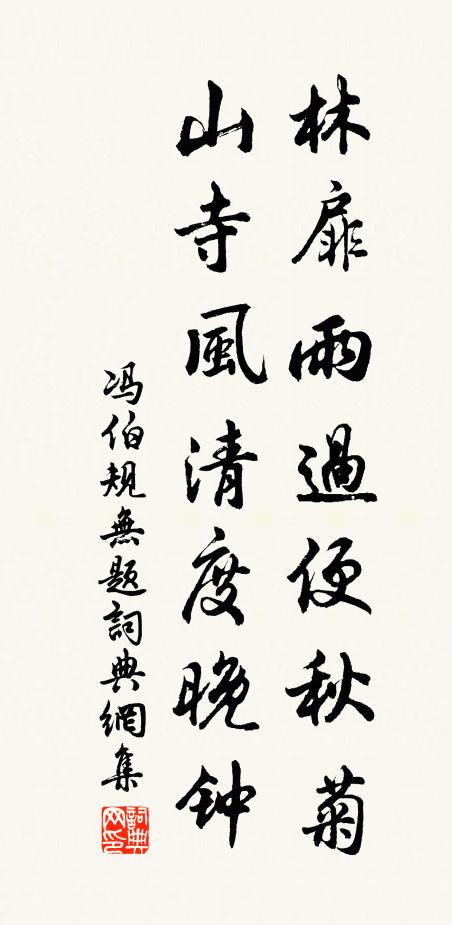 林扉雨過便秋菊
山寺風清度晚钟
冯伯规無题詞典網集
詞典网印